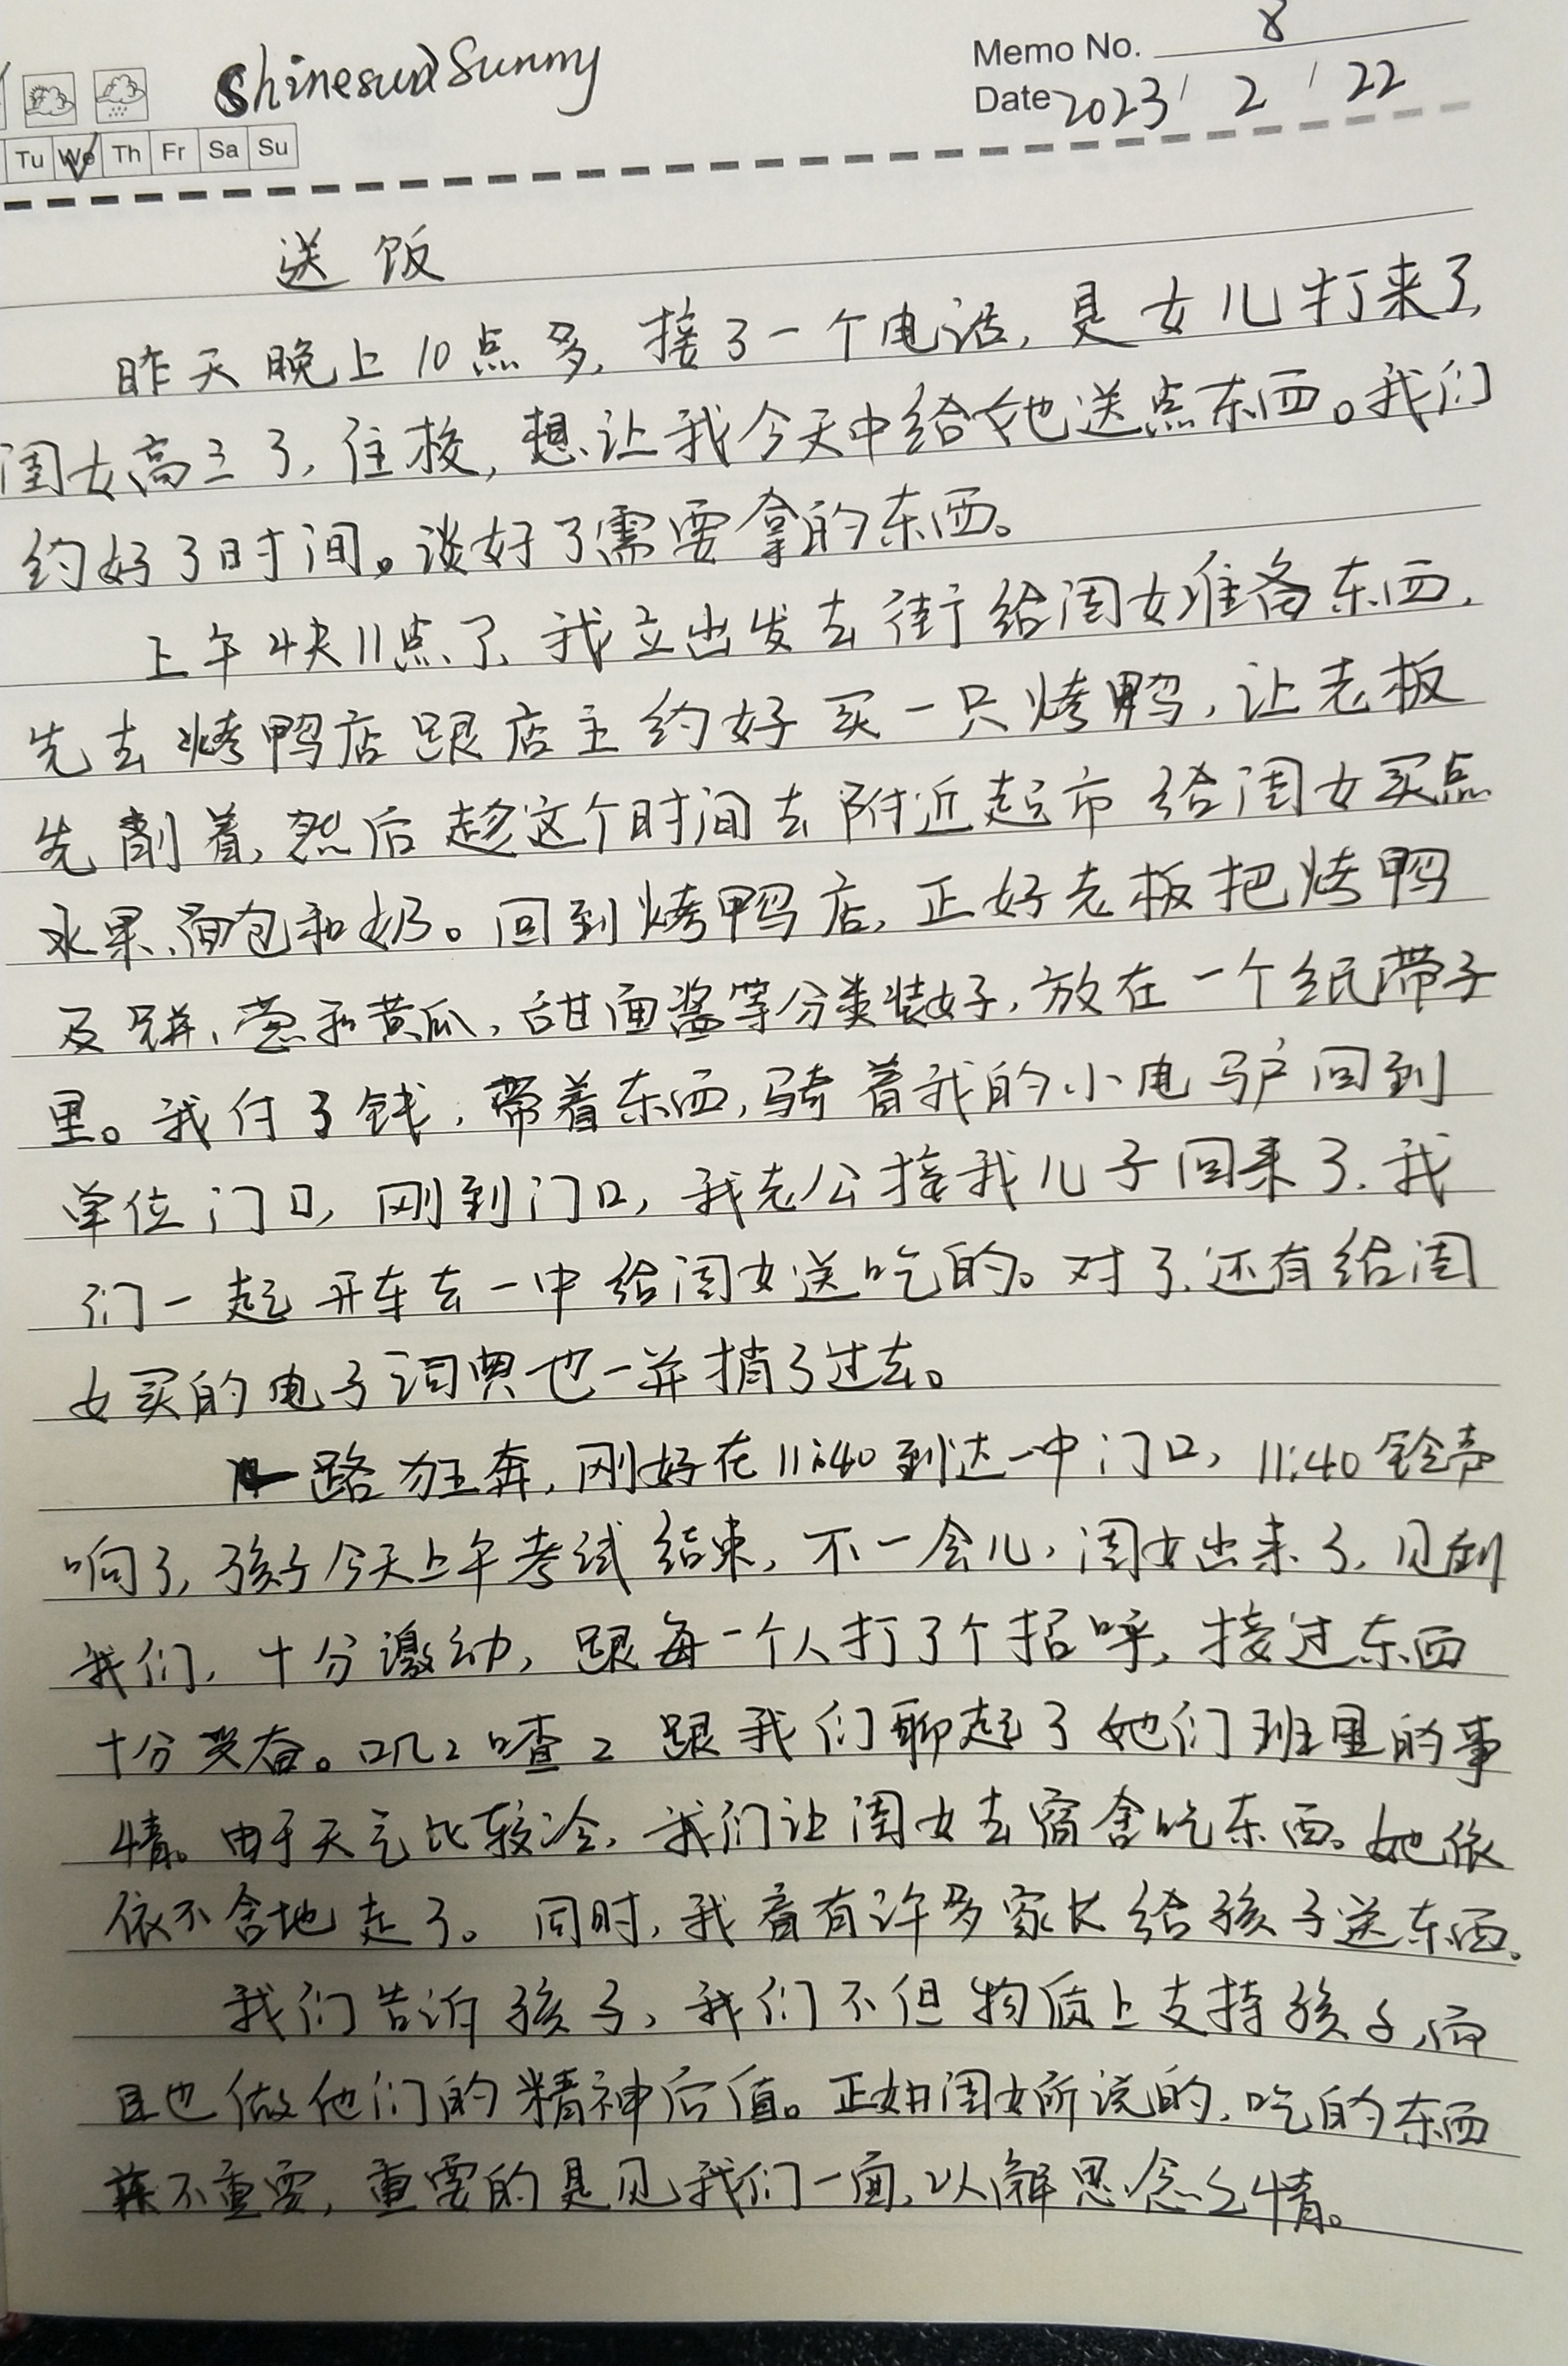 Shinesun Sunny
Memo No. 8
Date 2023 / 2 / 22
Tu We Th Fr Sa Su
送饭
昨天晚上10点多,接了一个电话,是女儿打来了,
闺女高三了,住校,想让我今天中给她送点东西。我们
约好了时间。谈好了需要拿的东西。
上午快11点了,我立出发去街给闺女准备东西,
先去烤鸭店跟店主约好买一只烤鸭,让老板
先削着,然后趁这个时间去附近超市给闺女买点
水果、面包和奶。回到烤鸭店,正好老板把烤鸭
及饼、葱和黄瓜,甜面酱等分类装好,放在一个纸带子
里。我付了钱,带着东西,骑着我的小电驴回到
单位门口,刚到门口,我老公接我儿子回来了.我
们一起开车去一中给闺女送吃的。对了,还有给闺
女买的电子词典也一并捎了过去。
一路狂奔,刚好在11:40到达一中门口,11:40铃声
响了,孩子今天上午考试结束,不一会儿,闺女出来了,见到
我们,十分激动,跟每一个人打了个招呼,接过东西
十分兴奋。叽叽喳喳跟我们聊起了她们班里的事
情。由于天气比较冷,我们让闺女去宿舍吃东西。她依
依不舍地走了。同时,我看有许多家长给孩子送东西。
我们告诉孩子,我们不但物质上支持孩子,而
且也做他们的精神后值。正如闺女所说的,吃的东西
不重要,重要的是见我们一面,以解思念之情。